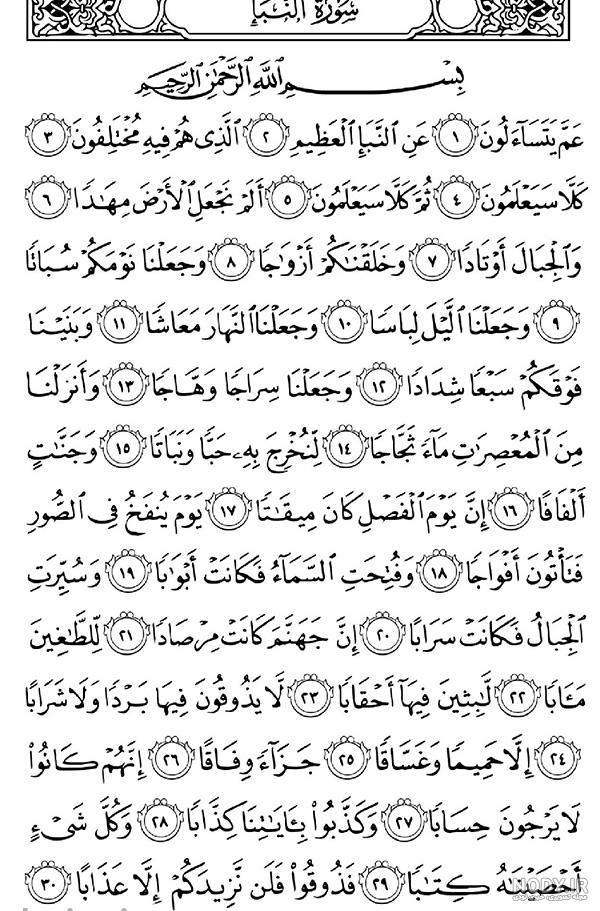 سُورَةُ النَّبَإِ
بِسْمِ ٱللَّهِ ٱلرَّحْمَٰنِ ٱلرَّحِيمِ
عَمَّ يَتَسَآءَلُونَ ١ عَنِ ٱلنَّبَإِ ٱلْعَظِيمِ ٢ ٱلَّذِى هُمْ فِيهِ مُخْتَلِفُونَ ٣
كَلَّا سَيَعْلَمُونَ ٤ ثُمَّ كَلَّا سَيَعْلَمُونَ ٥ أَلَمْ نَجْعَلِ ٱلْأَرْضَ مِهَٰدًا ٦
وَٱلْجِبَالَ أَوْتَادًا ٧ وَخَلَقْنَٰكُمْ أَزْوَٰجًا ٨ وَجَعَلْنَا نَوْمَكُمْ سُبَاتًا
٩ وَجَعَلْنَا ٱلَّيْلَ لِبَاسًا ١٠ وَجَعَلْنَا ٱلنَّهَارَ مَعَاشًا ١١ وَبَنَيْنَا
فَوْقَكُمْ سَبْعًا شِدَادًا ١٢ وَجَعَلْنَا سِرَاجًا وَهَّاجًا ١٣ وَأَنزَلْنَا
مِنَ ٱلْمُعْصِرَٰتِ مَآءً ثَجَّاجًا ١٤ لِّنُخْرِجَ بِهِۦ حَبًّا وَنَبَاتًا ١٥ وَجَنَّٰتٍ
أَلْفَافًا ١٦ إِنَّ يَوْمَ ٱلْفَصْلِ كَانَ مِيقَٰتًا ١٧ يَوْمَ يُنفَخُ فِى ٱلصُّورِ
فَتَأْتُونَ أَفْوَاجًا ١٨ وَفُتِحَتِ ٱلسَّمَآءُ فَكَانَتْ أَبْوَٰبًا ١٩ وَسُيِّرَتِ
ٱلْجِبَالُ فَكَانَتْ سَرَابًا ٢٠ إِنَّ جَهَنَّمَ كَانَتْ مِرْصَادًا ٢١ لِّلطَّٰغِينَ
مَـَٔابًا ٢٢ لَّٰبِثِينَ فِيهَآ أَحْقَابًا ٢٣ لَّا يَذُوقُونَ فِيهَا بَرْدًا وَلَا شَرَابًا
٢٤ إِلَّا حَمِيمًا وَغَسَّاقًا ٢٥ جَزَآءً وِفَاقًا ٢٦ إِنَّهُمْ كَانُوا۟
لَا يَرْجُونَ حِسَابًا ٢٧ وَكَذَّبُوا۟ بِـَٔايَٰتِنَا كِذَّابًا ٢٨ وَكُلَّ شَىْءٍ
أَحْصَيْنَٰهُ كِتَٰبًا ٢٩ فَذُوقُوا۟ فَلَن نَّزِيدَكُمْ إِلَّا عَذَابًا ٣٠
NODY.IR